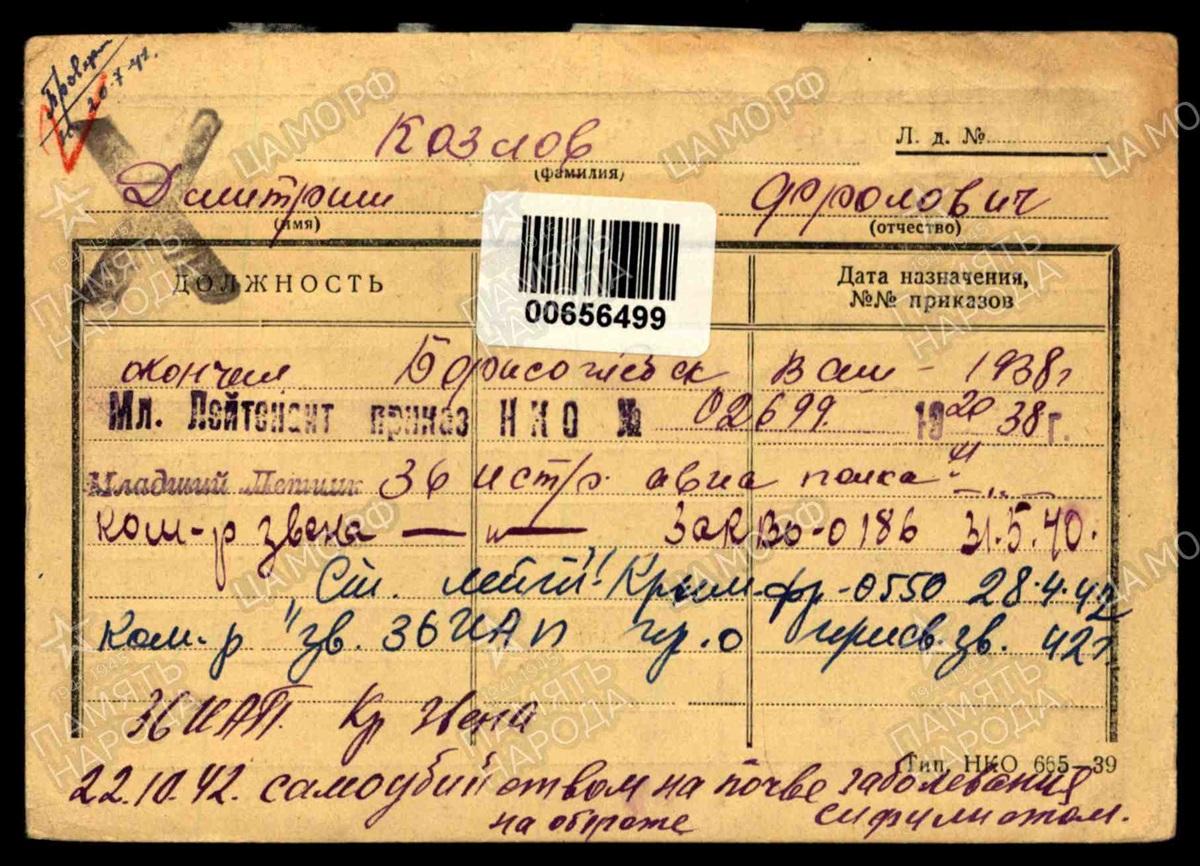 Провер
20.7.42.
Козлов
Л. д. №
(фамилия)
Дмитрий Фролович
(имя) (отчество)
ДОЛЖНОСТЬ
Дата назначения,
№№ приказов
00656499
окончил Борисоглебск ВАШ - 1938г
Мл. Лейтенант приказ НКО № 02699. 1938г.
Младший Летчик 36 истр. авиа полка
Ком-р звена — " — ЗакВо-0186 31.5.40.
"Ст. лейт" Крым.фр-0550 28.4.42
Ком-р зв. 36 ИАП пр. о присв. зв. 42г
36 ИАП. Кр звена
Тип. НКО 665—39
22.10.42. самоубийством на почве заболевания
на обороте сифилисом.
ЦАМО.РФ
ПАМЯТЬ НАРОДА
1941-1945